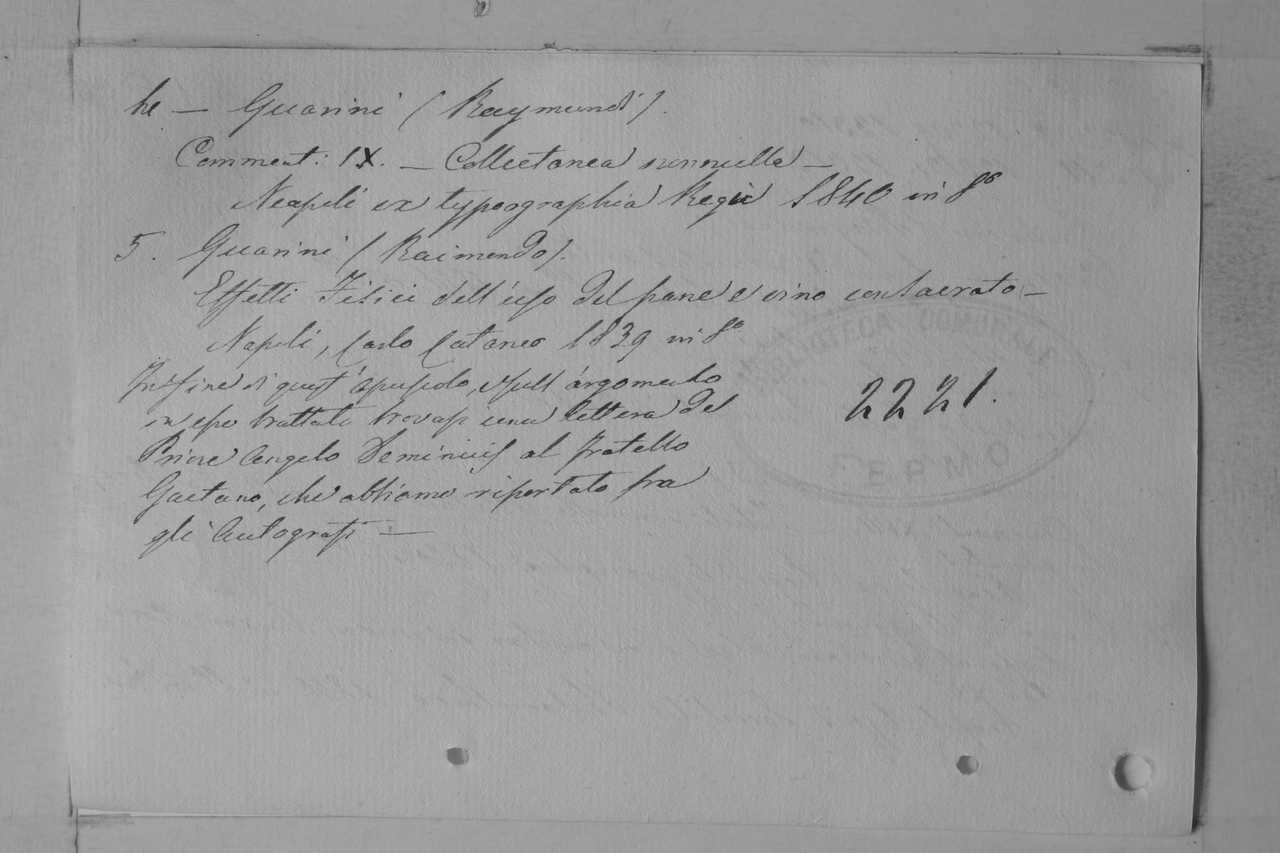 4 — Guarini (Raymundi).
Comment: IX. — Collectanea nonnulla —
Neapoli ex typographia Regia 1840 in 8°
5. Guarini (Raimondo).
Effetti Fisici dell'uso del pane e vino consacrato —
Napoli, Carlo Cataneo 1839 in 8°
In fine di quest'opuscolo, e sull'argomento
in esso trattato trovasi una lettera del
Priore Angelo Deminicis al fratello
Gaetano, che abbiamo riportato fra
gli Autografi —
2221.
BIBLIOTECA COMUNALE
FERMO